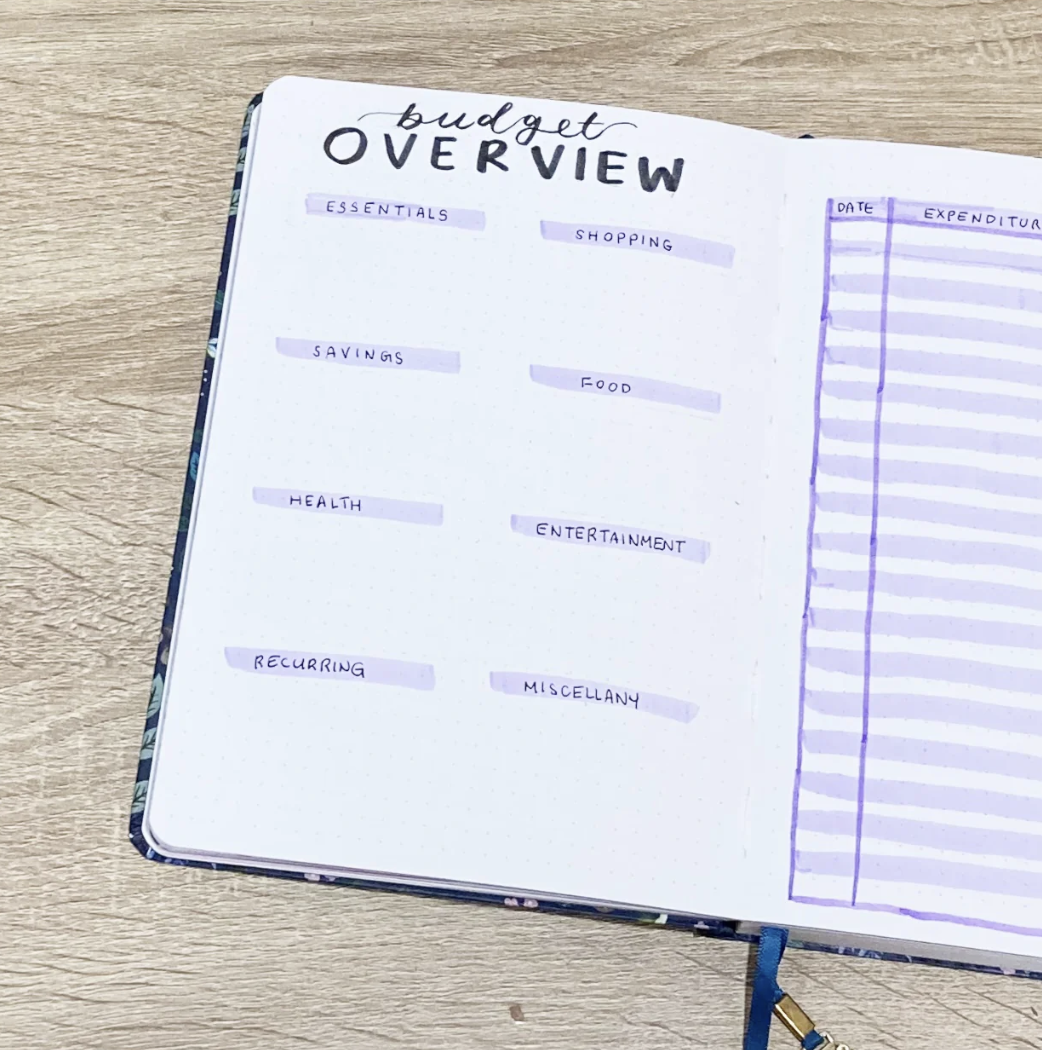 budget
OVERVIEW
ESSENTIALS
SHOPPING
SAVINGS
FOOD
HEALTH
ENTERTAINMENT
RECURRING
MISCELLANY
DATE
EXPENDITUR